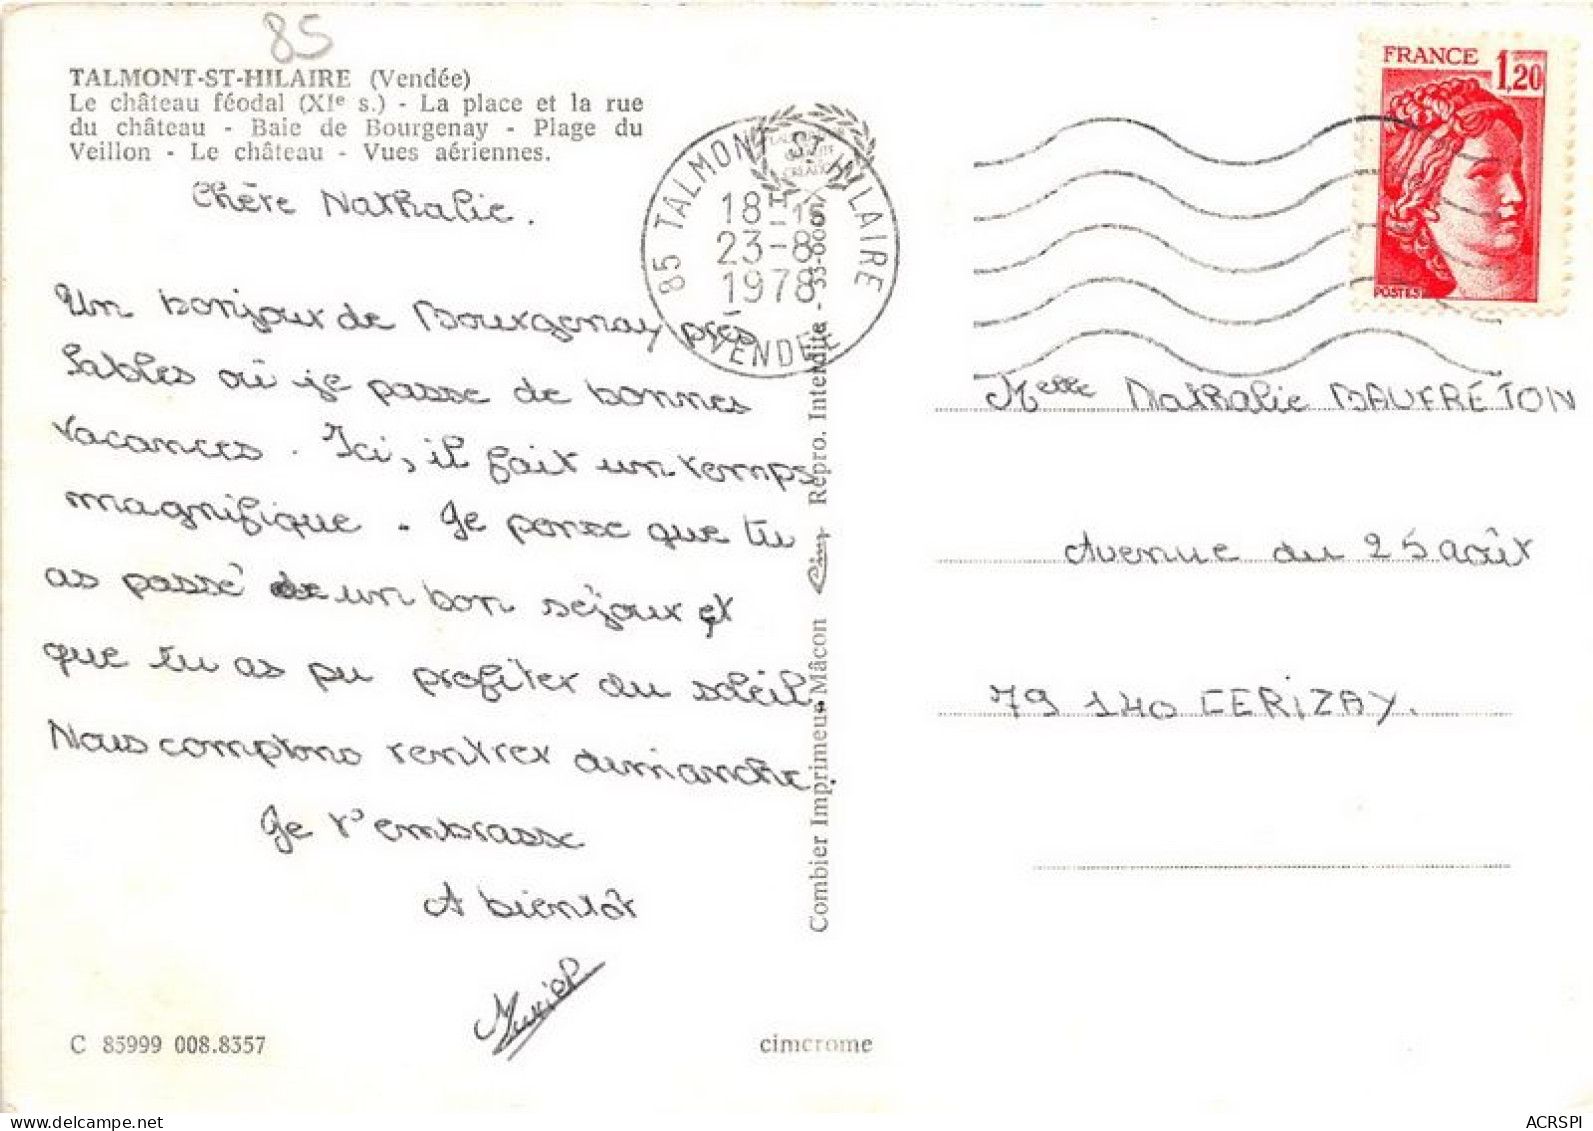 85
TALMONT-ST-HILAIRE (Vendée)
Le château féodal (XIe s.) - La place et la rue
du château - Baie de Bourgenay - Plage du
Veillon - Le château - Vues aériennes.
Chère Nathalie.
Un bonjour de Bourgenay près
Sables où je passe de bonnes
vacances. Ici, il fait un temps
magnifique. Je pense que tu
as passé un bon séjour et
que tu as pu profiter du soleil.
Nous comptons rentrer dimanche.
Je t'embrasse
A bientôt
Muriel
C 85999 008.8357
cimcrome
85 TALMONT ST HILAIRE
18-
23-8
1978
VENDÉE
Combier Imprimeur Mâcon Cim Repro. Interdite -
FRANCE 1,20
POSTES
Melle Nathalie MAUFRETON
Avenue du 25 août
79 140 CERIZAY.
www.delcampe.net
ACRSPI